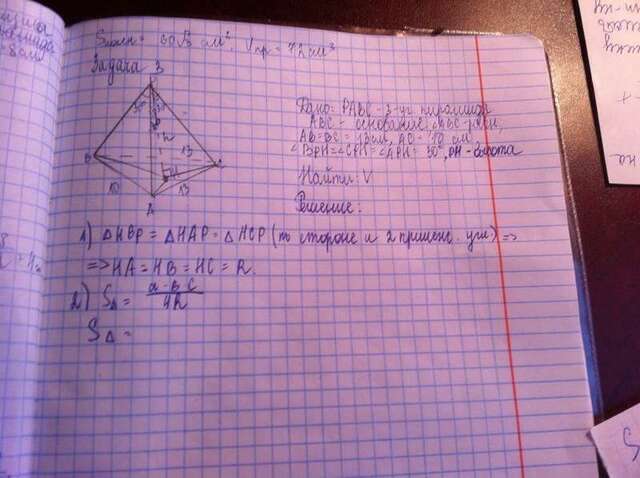 Sполн = 60√3 см². Vпр = 72 см³
Задача 3
Дано: PABC - 3-уг. пирамида
ABC - основание, ABC-равн,
AB=BC=13см, AC=10 см
∠BPH=∠CPH=∠APH=30°, PH-высота
Найти: V
Решение.
B
C
A
H
h
13
13
10
1) △HBP = △HAP = △HCP (по стороне и 2 прилеж. угл) =>
=> HA=HB=HC=R.
2) S△ = a·b·c / 4R
S△ =